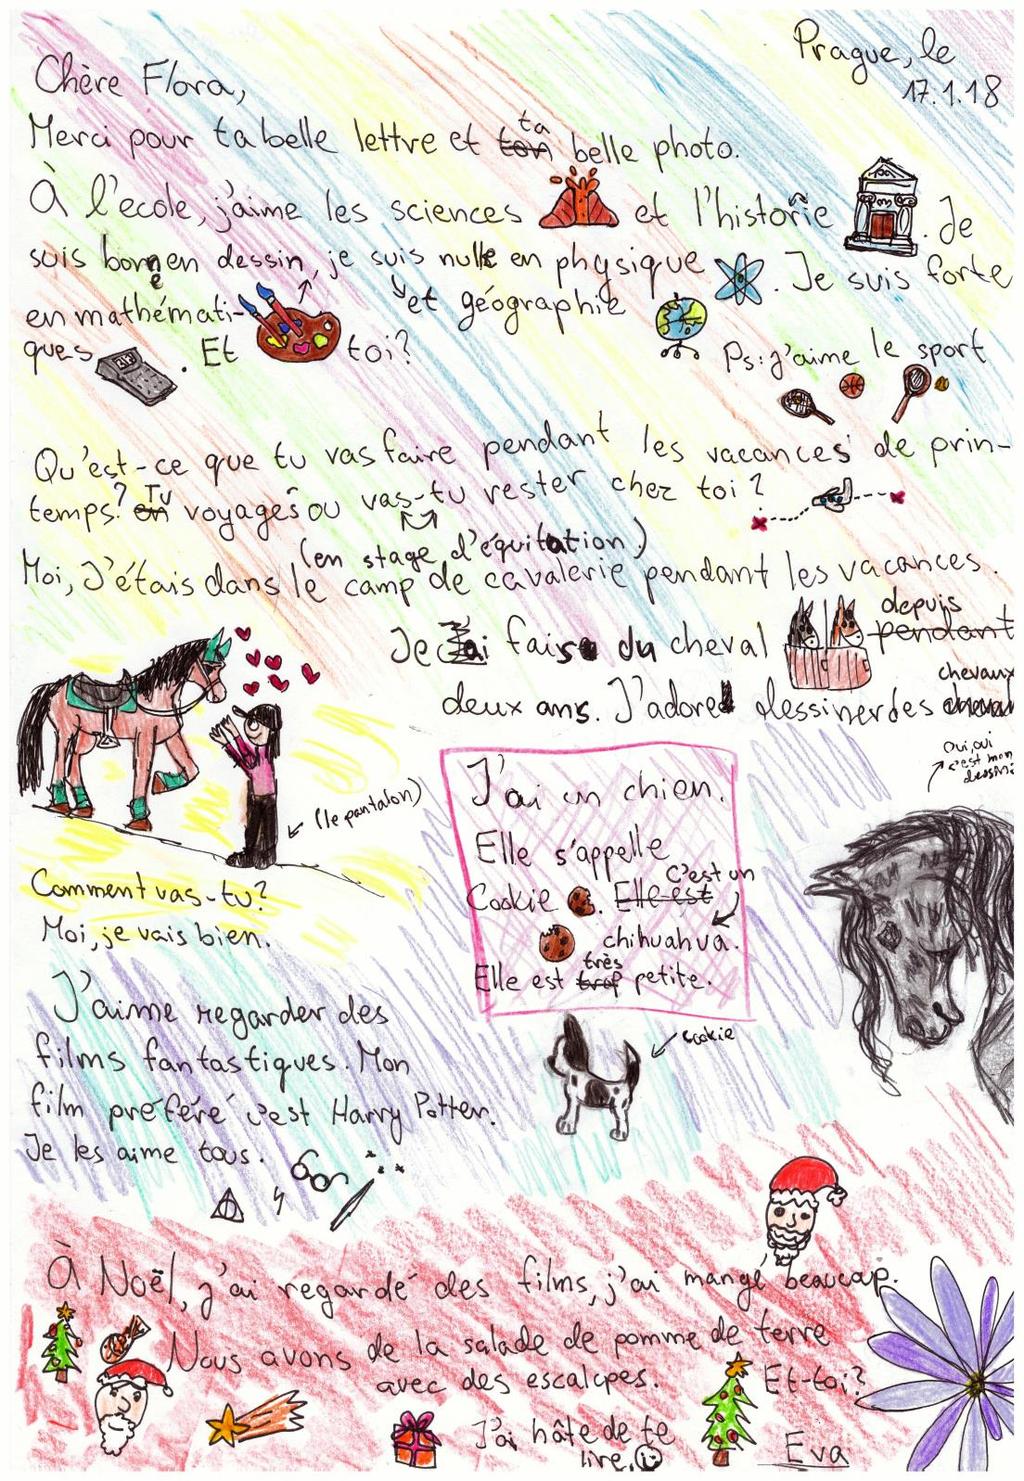 Prague, le
17.1.18
Chère Flora,
Merci pour ta belle lettre et ton ta belle photo.
À l'école, j'aime les sciences et l'histoire. Je
suis bonne en dessin, je suis nulle en physique. Je suis forte
en mathémati- et géographie
ques. Et toi?
Ps: j'aime le sport
Qu'est-ce que tu vas faire pendant les vacances de prin-
temps? on Tu voyages ou vas-tu rester chez toi?
(en stage d'équitation)
Moi, J'étais dans le camp de cavalerie pendant les vacances.
Je fais du cheval depuis pendant
deux ans. J'adore dessiner des chevaux cheval
Oui, oui
c'est mon
dessin
(le pantalon)
J'ai un chien.
Elle s'appelle
Cookie. Elle est C'est un
chihuahua.
Elle est trop très petite.
cookie
Comment vas-tu?
Moi, je vais bien.
J'aime regarder des
films fantastiques. Mon
film préféré c'est Harry Potter.
Je les aime tous.
À Noël, j'ai regardé des films, j'ai mangé beaucoup.
Nous avons de la salade de pomme de terre
avec des escalopes. Et-toi?
J'ai hâte de te
lire.
Eva